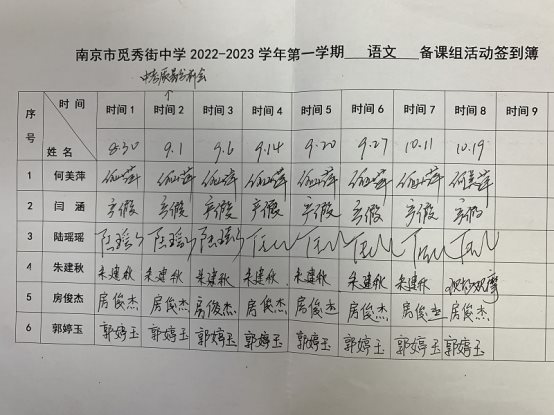 南京市觅秀街中学 2022-2023 学年第一学期 语文 备课组活动签到簿
序号 时间 姓名 时间 1 时间 2 时间 3 时间 4 时间 5 时间 6 时间 7 时间 8 时间 9
8.30 9.1 9.6 9.14 9.20 9.27 10.11 10.19
1 何美萍 何美萍 何美萍 何美萍 何美萍 何美萍 何美萍 何美萍 何美萍
2 闫涵 产假 产假 产假 产假 产假 产假 产假 产假
3 陆瑶瑶 陆瑶瑶 陆瑶瑶 陆瑶瑶
4 朱建秋 朱建秋 朱建秋 朱建秋 朱建秋 朱建秋 朱建秋 朱建秋
5 房俊杰 房俊杰 房俊杰 房俊杰 房俊杰 房俊杰 房俊杰 房俊杰 房俊杰
6 郭婷玉 郭婷玉 郭婷玉 郭婷玉 郭婷玉 郭婷玉 郭婷玉 郭婷玉 郭婷玉